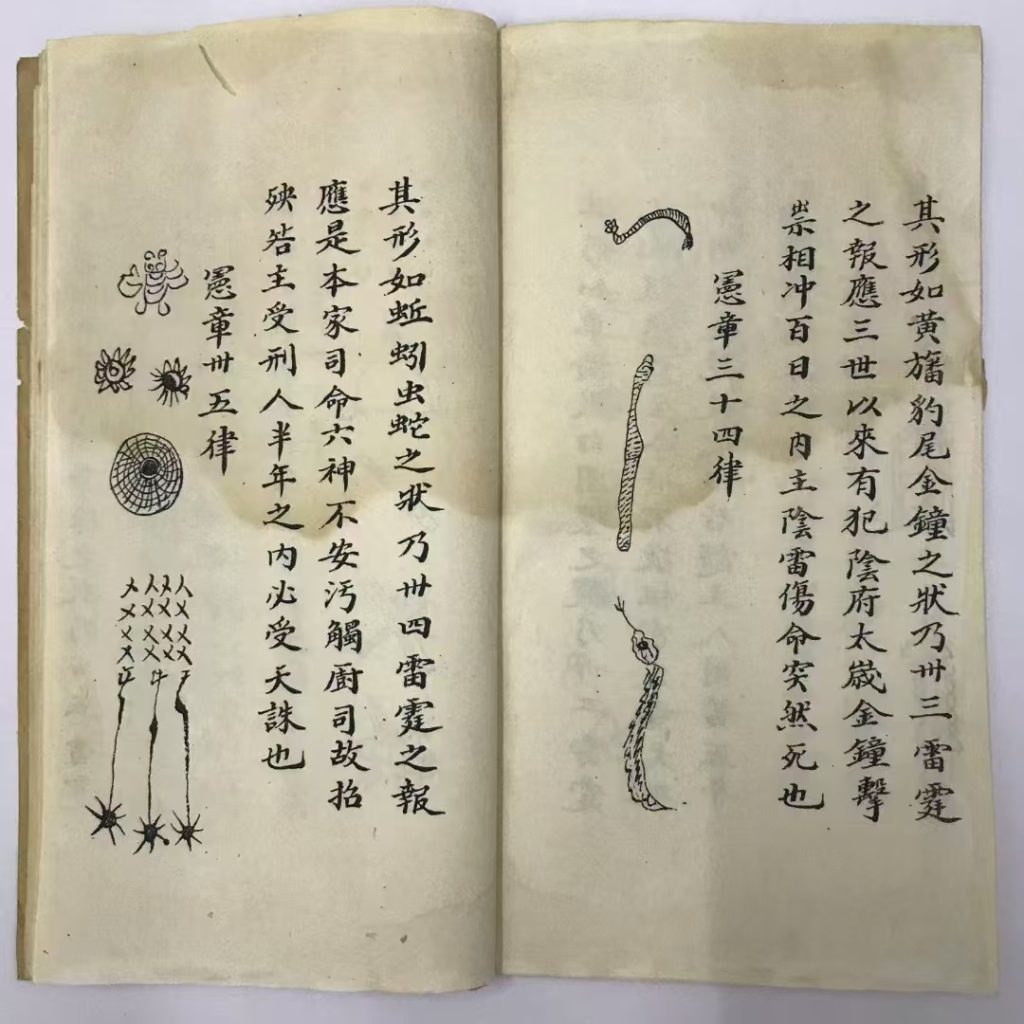 其形如黃旛豹尾金鐘之狀乃卅三雷霆
之報應三世以來有犯陰府太歲金鐘擊
祟相冲百日之內主陰雷傷命突然死也
憲章三十四律
其形如蚯蚓虫蛇之狀乃卅四雷霆之報
應是本家司命六神不安汚觸廚司故招
殃咎主受刑人半年之內必受天誅也
憲章卅五律